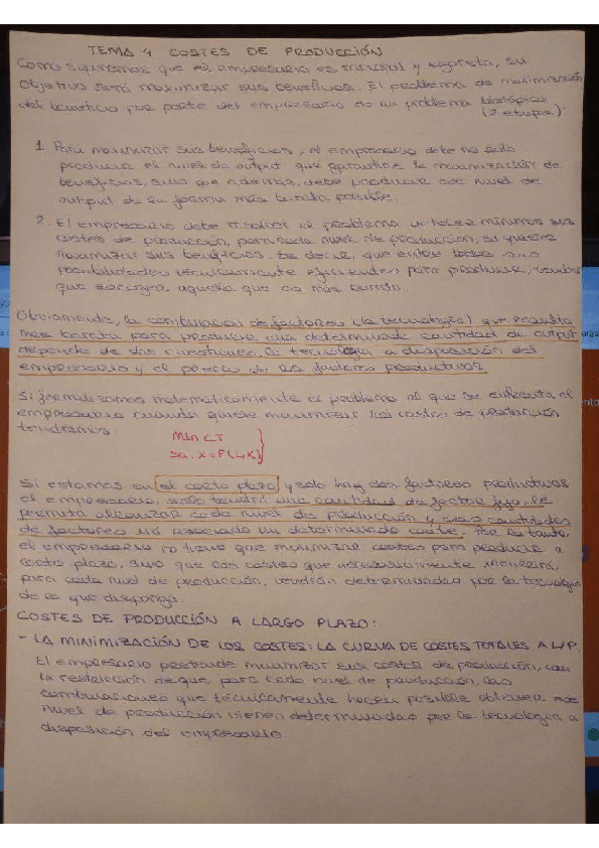 TEMA 4 COSTES DE PRODUCCIÓN
Como suponemos que el empresario es racional y egoísta, su
objetivo será maximizar sus beneficios. El problema de maximización
del beneficio por parte del empresario es un problema
(2 etapas).
1. Para maximizar sus beneficios, el empresario debe no solo
producir el nivel de output que garantice la maximización de
beneficios, sino que además, debe producir ese nivel de
output de la forma más barata posible.
2. El empresario debe resolver el problema de hacer mínimos sus
costes de producción, para cada nivel de producción, si quiere
maximizar sus beneficios. Es decir, que entre todas sus
posibilidades técnicamente eficientes para producir, tendrá
que escoger aquella que es más barata.
Obviamente, la combinación de factores (la tecnología) que resulta
más barata para producir una determinada cantidad de output
depende de dos cuestiones, la tecnología a disposición del
empresario y el precio de los factores productivos
Si formalizamos matemáticamente el problema al que se enfrenta el
empresario cuando quiere maximizar los costes de producción
tendremos:
Min CT
sa. X=F(L,K)
Si estamos en el corto plazo y solo hay dos factores productivos
el empresario, solo tendrá una cantidad de factor fijo, le
permita alcanzar cada nivel de producción y esas cantidades
de factores irá asociado un determinado coste. Por lo tanto,
el empresario no tiene que minimizar costes para producir a
corto plazo, sino que los costes que necesariamente incurrirá,
para cada nivel de producción, vendrán determinados por la tecnología
de la que disponga.
COSTES DE PRODUCCIÓN A LARGO PLAZO:
- LA MINIMIZACIÓN DE LOS COSTES: LA CURVA DE COSTES TOTALES A L/P.
El empresario pretende minimizar sus costes de producción, con
la restricción de que para cada nivel de producción, las
combinaciones que técnicamente hacen posible obtener ese
nivel de producción vienen determinadas por la tecnología a
disposición del empresario.